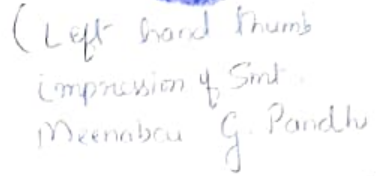 (Left hand thumb
impression of Smt.
Meenabai G. Pandhu